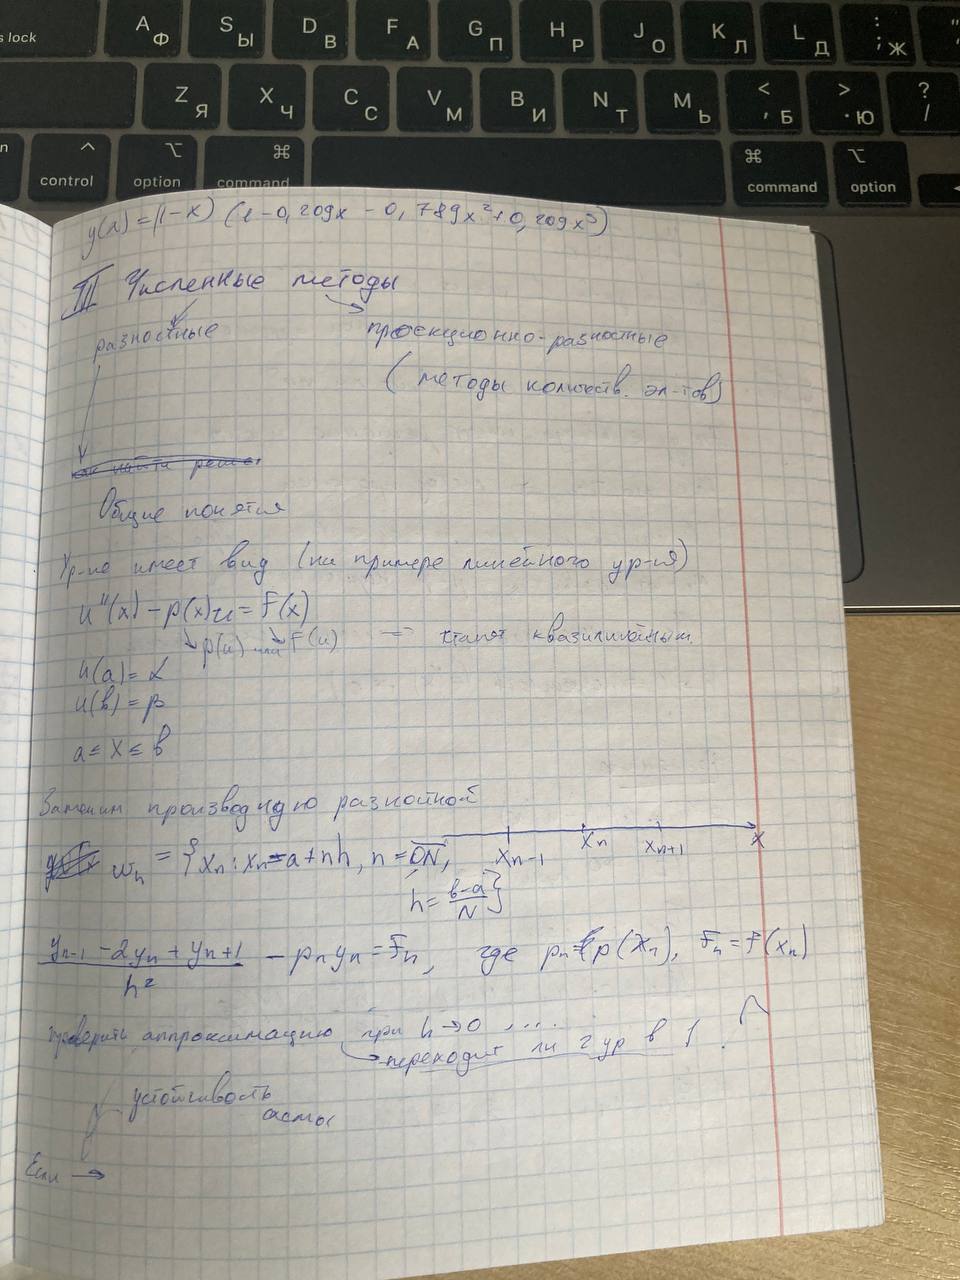 s lock A Ф S Ы D В F А G П H Р J О K Л L Д ; : Ж "
Z Я X Ч C С V М B И N Т M Ь < , Б > . Ю ? /
n ^ control ⌥ option ⌘ command ⌘ command ⌥ option
y(x) = (1-x) (1-0,209x - 0,789x² + 0,209x³)
III Численные методы
разностные проекционно-разностные
(методы эл-тов)
Общие понятия
Ур-ие имеет вид (на примере линейного ур-ия)
u''(x) - p(x)u = f(x)
p(u) или f(u) ⇒ станет квазилинейным.
u(a) = α
u(b) = β
a ≤ x ≤ b
Заменим производную разностной
ωn = {xn : xn = a + nh, n = 0N, xn-1 xn xn+1 x
h = b-a / N}
yn-1 - 2yn + yn+1 / h² - pnyn = Fn, где pn = p(xn), Fn = f(xn)
проверить аппроксимацию при h → 0 , ....
переходит ли 2 ур в 1 ?
устойчивость
Если →